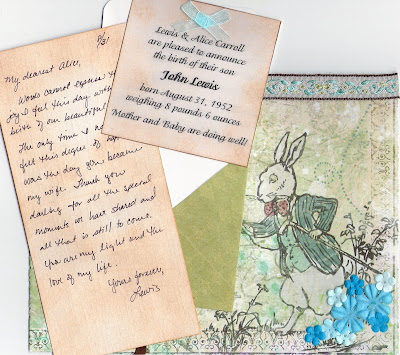 8/31
My dearest Alice,
Words cannot express the
joy I feel this day with the
birth of our beautiful
The only time I
felt this degree of
was the day you became
my wife. Thank you
darling for all the special
moments we have shared and
all that is still to come.
You are my light and the
love of my life.
Yours forever,
Lewis
Lewis & Alice Carroll
are pleased to announce
the birth of their son
John Lewis
born August 31, 1952
weighing 8 pounds 6 ounces
Mother and Baby are doing well!